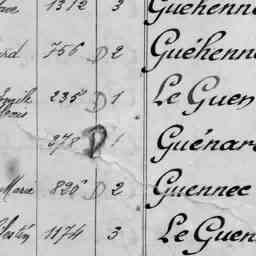 1312 3 Guéhenn
756 D 2 Guéhenn
235 D 1 Le Guen
378 D 1 Guénar
Marie 820 D 2 Guennec
1174 3 Le Guen